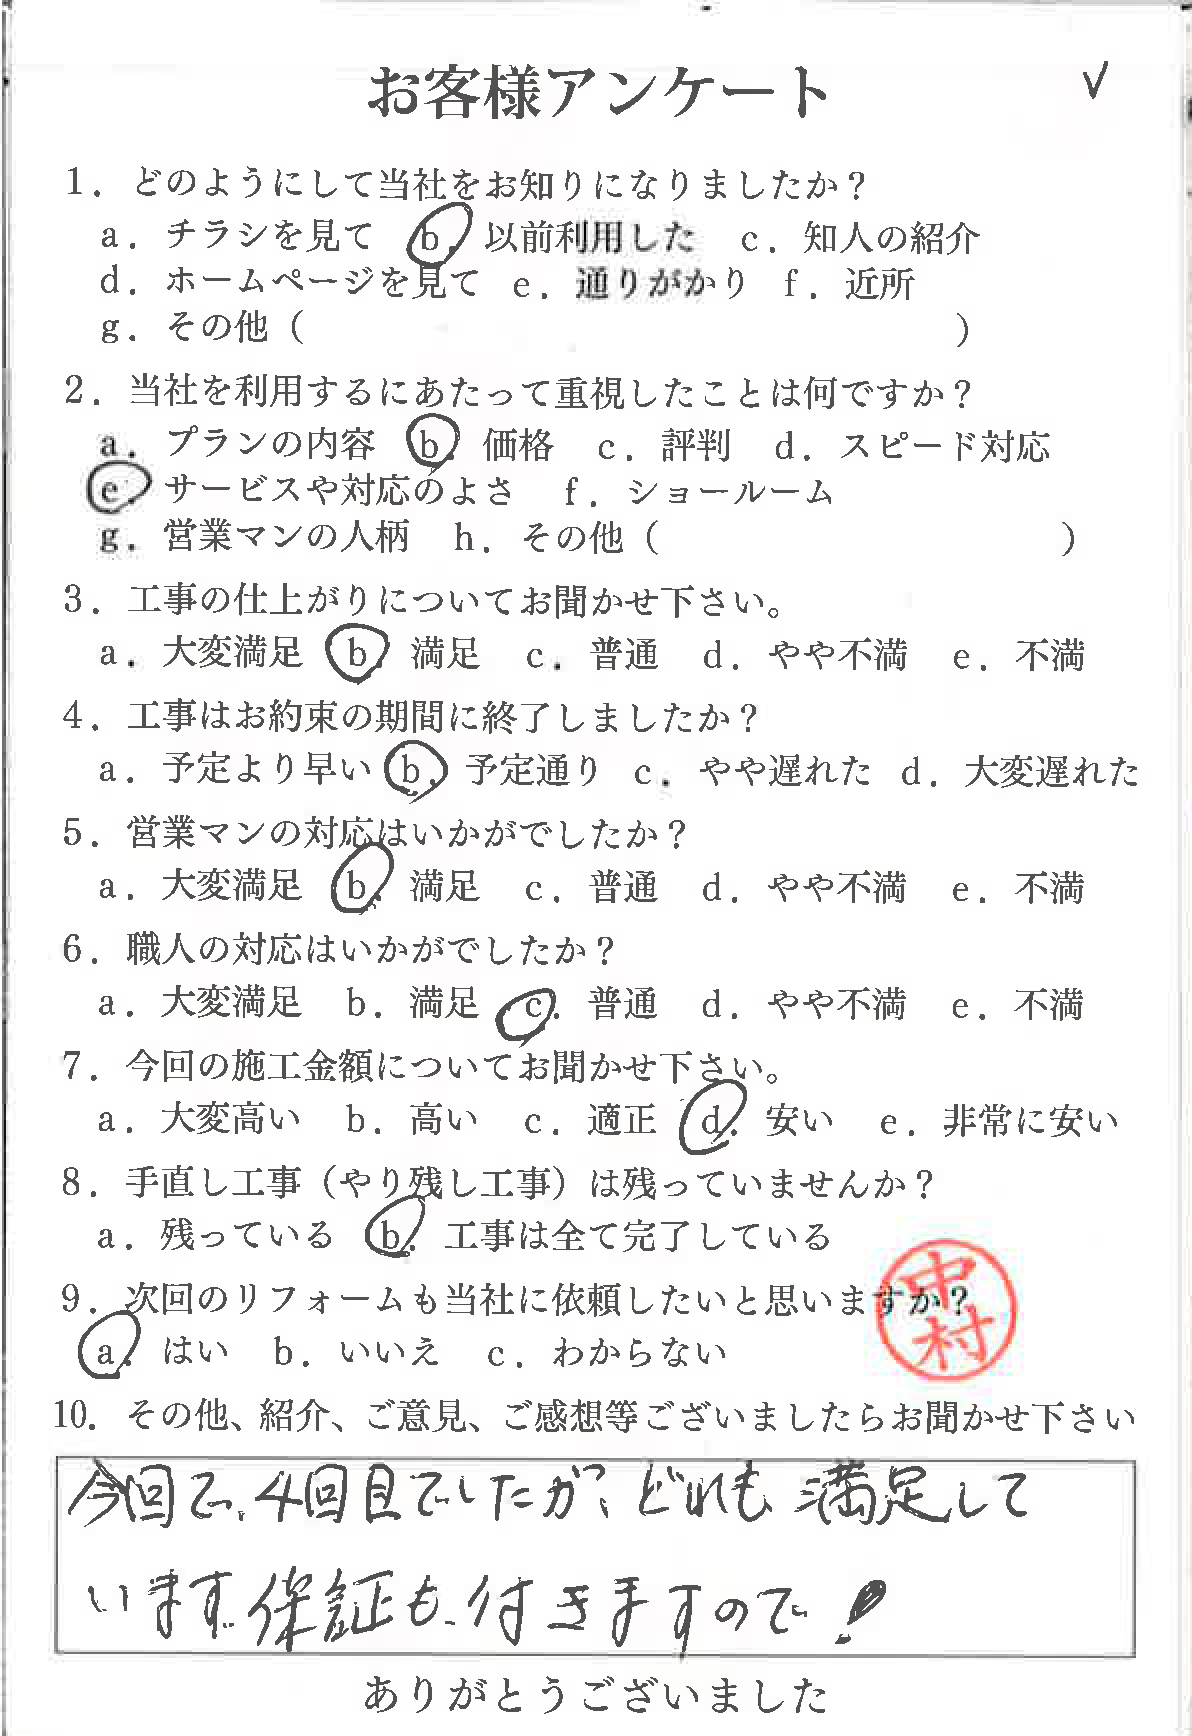 お客様アンケート
1．どのようにして当社をお知りになりましたか？
a．チラシを見て　b．以前利用した　c．知人の紹介
d．ホームページを見て　e．通りがかり　f．近所
g．その他（　　　　　　　　　　）
2．当社を利用するにあたって重視したことは何ですか？
a．プランの内容　b．価格　c．評判　d．スピード対応
e．サービスや対応のよさ　f．ショールーム
g．営業マンの人柄　h．その他（　　　　　　　　　　）
3．工事の仕上がりについてお聞かせ下さい。
a．大変満足　b．満足　c．普通　d．やや不満　e．不満
4．工事はお約束の期間に終了しましたか？
a．予定より早い　b．予定通り　c．やや遅れた　d．大変遅れた
5．営業マンの対応はいかがでしたか？
a．大変満足　b．満足　c．普通　d．やや不満　e．不満
6．職人の対応はいかがでしたか？
a．大変満足　b．満足　c．普通　d．やや不満　e．不満
7．今回の施工金額についてお聞かせ下さい。
a．大変高い　b．高い　c．適正　d．安い　e．非常に安い
8．手直し工事（やり残し工事）は残っていませんか？
a．残っている　b．工事は全て完了している
9．次回のリフォームも当社に依頼したいと思いますか？
中村
a．はい　b．いいえ　c．わからない
10．その他、紹介、ご意見、ご感想等ございましたらお聞かせ下さい
今回で、4回目でしたが、どれも満足して
います。保証も付きますので！
ありがとうございました